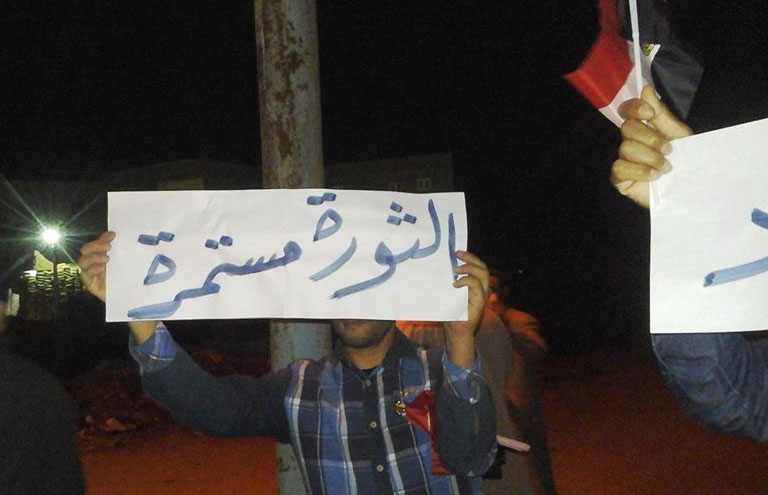 الثورة مستمرة